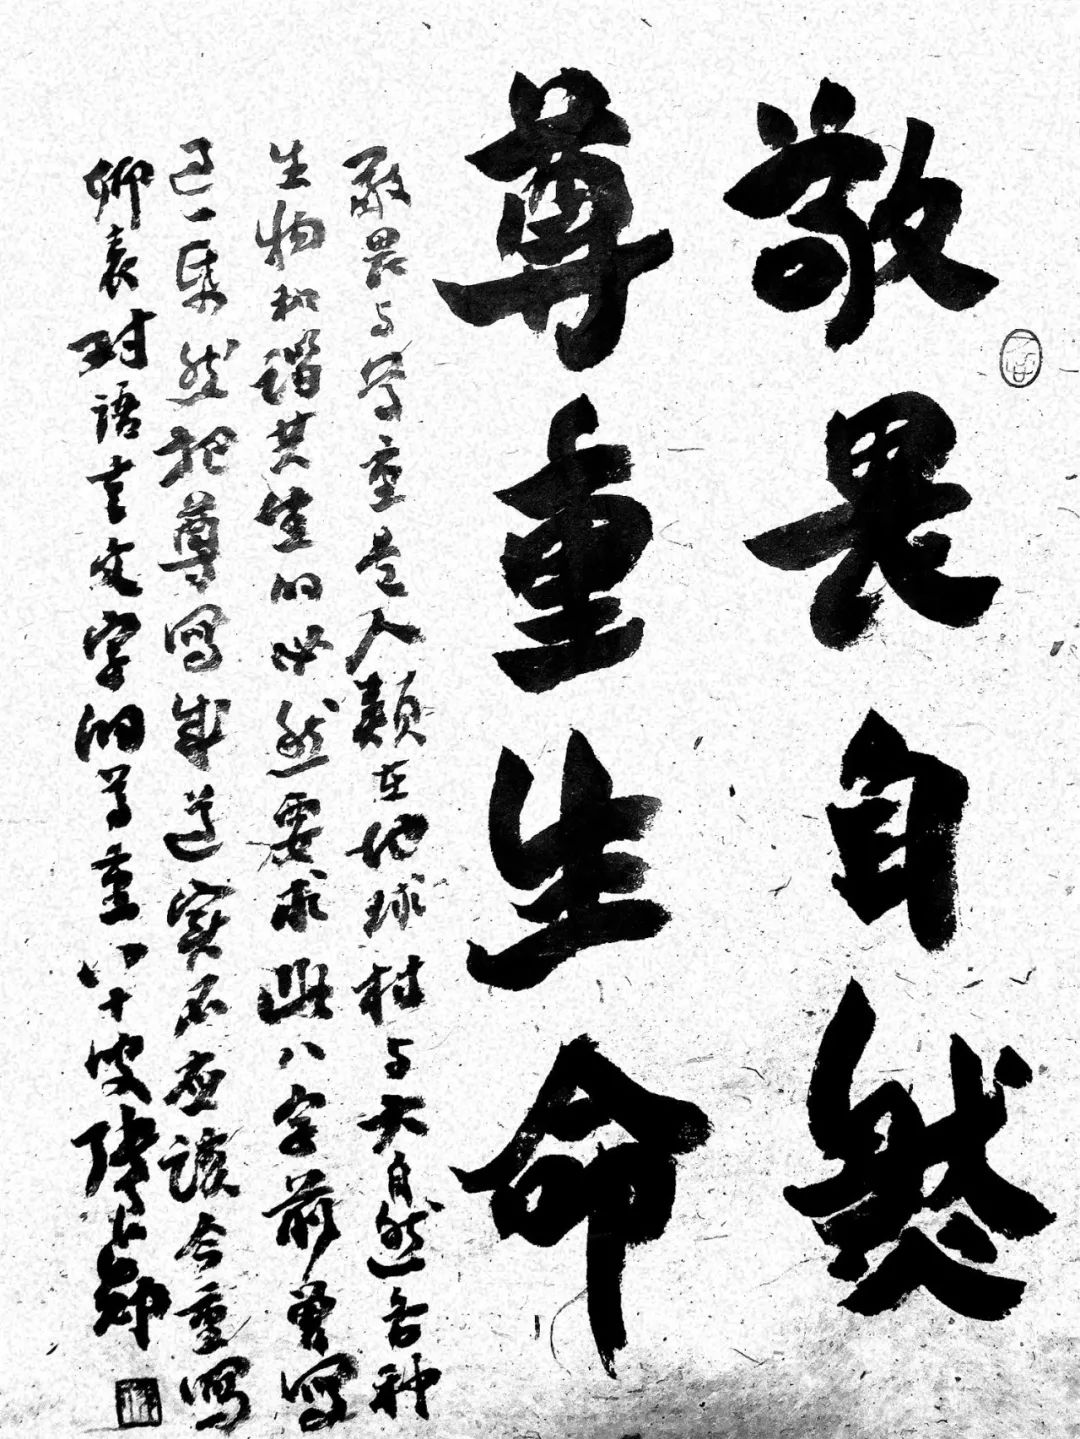 敬畏自然
尊重生命
敬畏与尊重是人類在地球村与大自然各种
生物和谐共生的必然要求此八字前曾写
过一然把尊寫成遵實不应该今重寫
聊表对語言文字的尊重八十叟